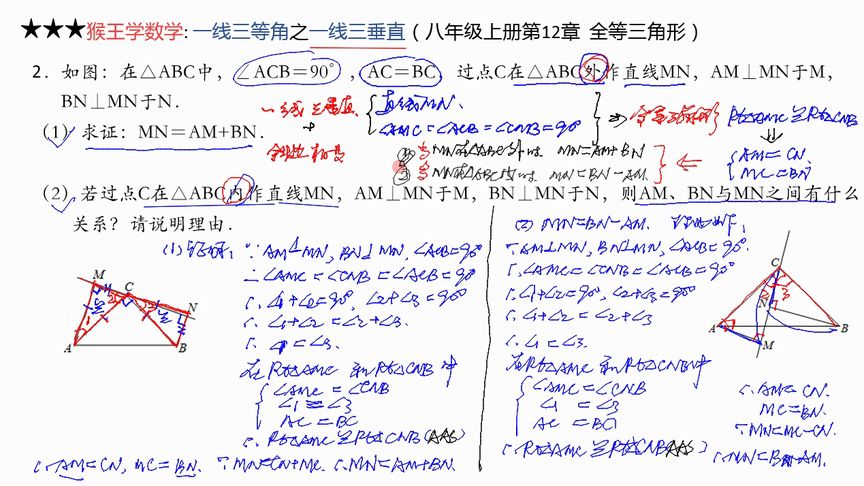 ★★★猴王学数学: 一线三等角之一线三垂直（八年级上册第12章 全等三角形）
2．如图：在△ABC中，∠ACB=90°，AC=BC，过点C在△ABC外作直线MN，AM⊥MN于M，
BN⊥MN于N．
一线三垂直
+
直线MN、
∠AMC=∠ACB=∠CNB=90°
⇒
Rt△AMC≌Rt△CNB
⇓
AM=CN、
MC=BN
(1) 求证：MN=AM+BN．
① 当MN在△ABC外时 MN=AM+BN
② 当MN在△ABC内时 MN=BN-AM
⇐
(2) 若过点C在△ABC内作直线MN，AM⊥MN于M，BN⊥MN于N，则AM、BN与MN之间有什么
关系？请说明理由．
(1) 证明: ∵AM⊥MN, BN⊥MN, ∠ACB=90°
∴∠AMC=∠CNB=∠ACB=90°
∴∠1+∠2=90°, ∠2+∠3=90°
∴∠1+∠2=∠2+∠3
∴∠1=∠3
在Rt△AMC和Rt△CNB中
∠AMC=∠CNB
∠1=∠3
AC=BC
∴Rt△AMC≌Rt△CNB (AAS)
∴AM=CN, MC=BN. ∵MN=CN+MC. ∴MN=AM+BN.
M
C
N
A
B
(2) MN=BN-AM. 理由如下:
∵AM⊥MN, BN⊥MN, ∠ACB=90°.
∴∠AMC=∠CNB=∠ACB=90°
∴∠1+∠2=90°, ∠2+∠3=90°
∴∠1+∠2=∠2+∠3
∴∠1=∠3.
在Rt△AMC和Rt△CNB中
∠AMC=∠CNB
∠1=∠3
AC=BC
∴Rt△AMC≌Rt△CNB (AAS)
∴AM=CN.
MC=BN.
∵MN=MC-CN.
∴MN=BN-AM.
C
N
A
B
M